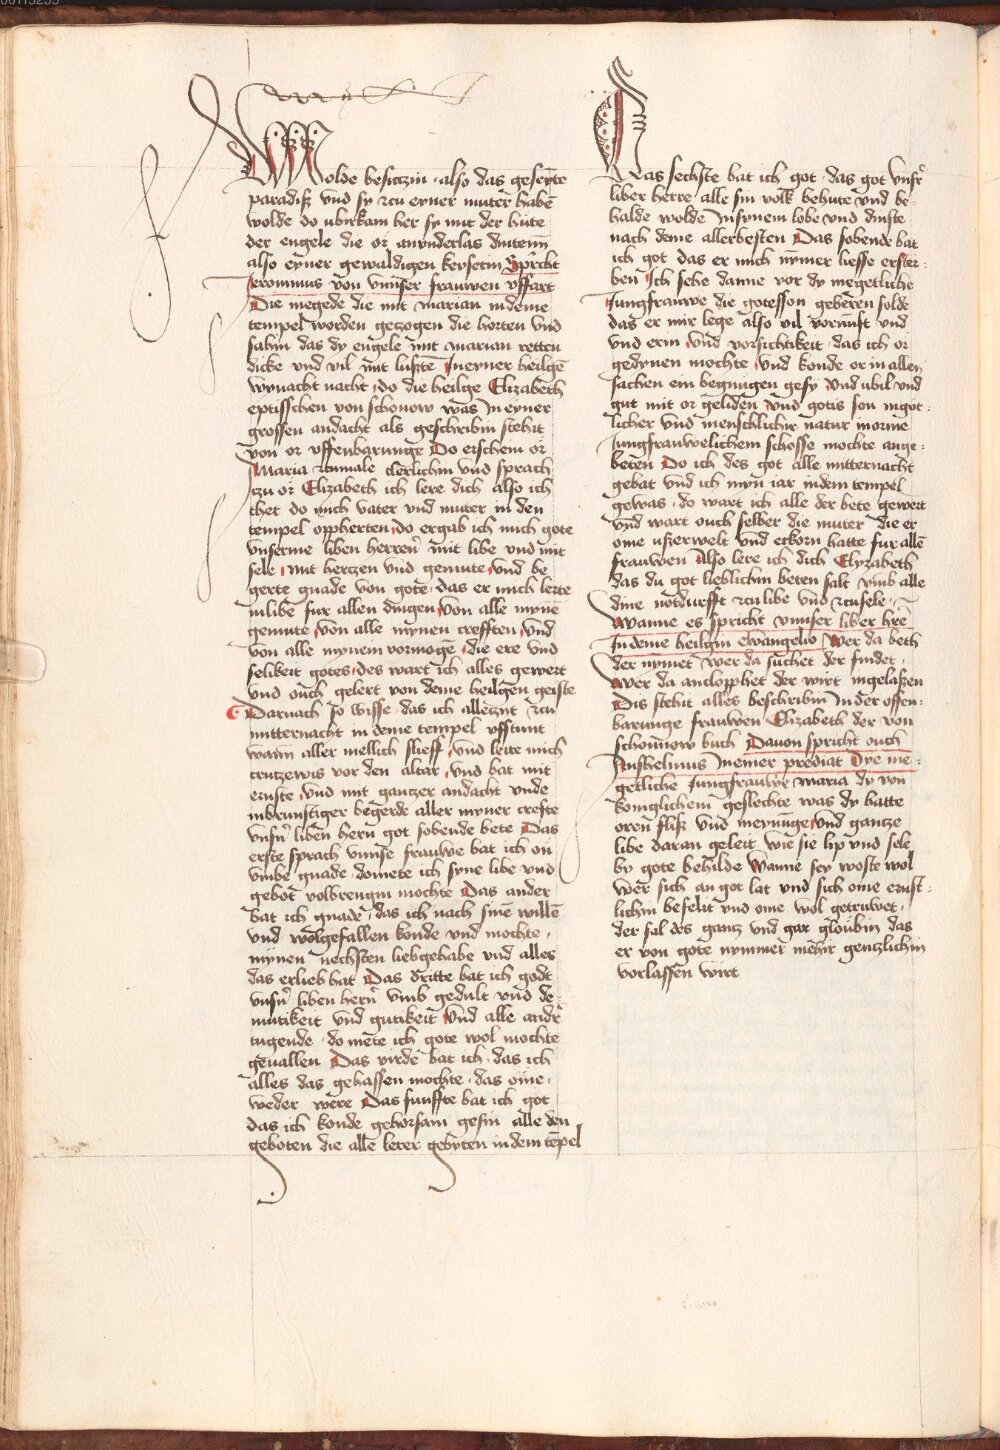 Wolde besitczin · also das geseyte
paradisz vnd sy zcu eyner muter habē
wolde do ubirkam her sy mit der hute
der engele die or anvnderlas dinten
also eyner gewaldigen keyserin Spricht
Jeronimus von vnnser frauwen vffart
Die megede die mit marian in deme
tempel worden geczogen die horten vnd
sahin das dy engele mit marian retten
dicke vnd vil mit luszte In eyner heilgē
wynacht nacht do die heilge Elizabeth
eptisschen von schonow was In eyner
grossen andacht als geschribin stehit
von or vffenbarunge Do erschein or
Maria zcumale clerlichin vnd sprach
zcu or Elizabeth ich lere dich also ich
thet do mich vater vnd muter in den
tempel oppherten do ergab ich mich gote
vnserme liben herren mit libe vnd mit
sele mit hertzen vnd gemute vnd be
gerte gnade von gote · das er mich lerte
in libe fur allen dingen von alle myne
gemute von alle mynen crefften vnd
von alle mynem vormoge die ere vnd
selikeit gotes des wart ich alles gewert
vnd ouch gelert von deme heilgen geiste
Darnach so wisse das ich alleczit zcu
mitternacht in deme tempel vfstunt
wann aller mellich slieff vnd leite mich
crutzewis vor den altar vnd bat mit
ernste vnd mit gantzer andacht vnde
inbrunstiger begerde aller myner crefte
vnsn̄ liben hern got sobende bete Das
erste sprach vnnse frauwe bat ich on
vmbe gnade domete ich syne libe vnd
gebot volbrengin mochte Das ander
bat ich gnade · das ich nach sinē willē
vnd wolgefallen konde vnd mochte
mynen nechsten liebgehabe vnd alles
das erlieb hat Das dritte bat ich godt
vnsn̄ liben hern vmb gedult vnd de
mutikeit vnd gutikeit vnd alle andr̄
tugende do mete ich gote wol mochte
geuallen Das virde bat ich · das ich
alles das gehassen mochte · das ome
weder were Das funffte bat ich got
das ich konde gehorsam gesin alle den
geboten die alle lerer gebyten in dem tēpel
Das sechste bat ich got · das got vnsr̄
liber herre alle sin volk behute vnd be
halde wolde in synem lobe vnd dinste
nach deme allerbesten Das sobende bat
ich got das er mich nymer liesse erster
ben Ich sehe danne vor dy megetliche
Jungfrauwe die gotesson geberen solde
das er mir lege also vil vornūft vnd
vnd erin vnd vorsichtikeit das ich or
gedynen mochte vnd konde or in allen
sachen ein begnugen gesy vnd ubil vnd
gut mit or geliden vnd gotis son in got
licher vnd menschlichir natur in orme
Jungfrauwelichem schosse mochte ange
beten Do ich des got alle mitternacht
gebat vnd ich myn iar in dem tempel
gewas · do wart ich alle der bete gewert
vnd wart ouch selber die muter die er
ome uszerwelt vnd erkorn hatte fur allē
frauwen Also lere ich dich Elyzabeth
das du got lieblichin beten salt vmb alle
dine notdurfft zcu libe vnd zcu sele ·
Wanne es spricht vnnser liber hre
In deme heilgin ewangelio Wer da beth
der nymet wer da suchet der findet
Wer da anclopphet der wirt ingelaszen
Dis stehit alles beschribin In der offen
barunge frauwen Elizabeth der von
schonnow buch Dauon spricht ouch
Anshelmus In einer prediat Dye me
getliche Jungfrauwe maria dy von
koniglichem geslechte was dy hatte
oren flisz vnd meynunge vnd gantze
libe daran geleit wie sie lip vnd sele
by gote behilde Wanne sey woste wol
wer sich an got lat vnd sich ome ernst
lichin befelit vnd ome wol getruwet
der sal des gantz vnd gar gloubin das
er von gote nymmer mehir gentzlichin
vorlassen wirt